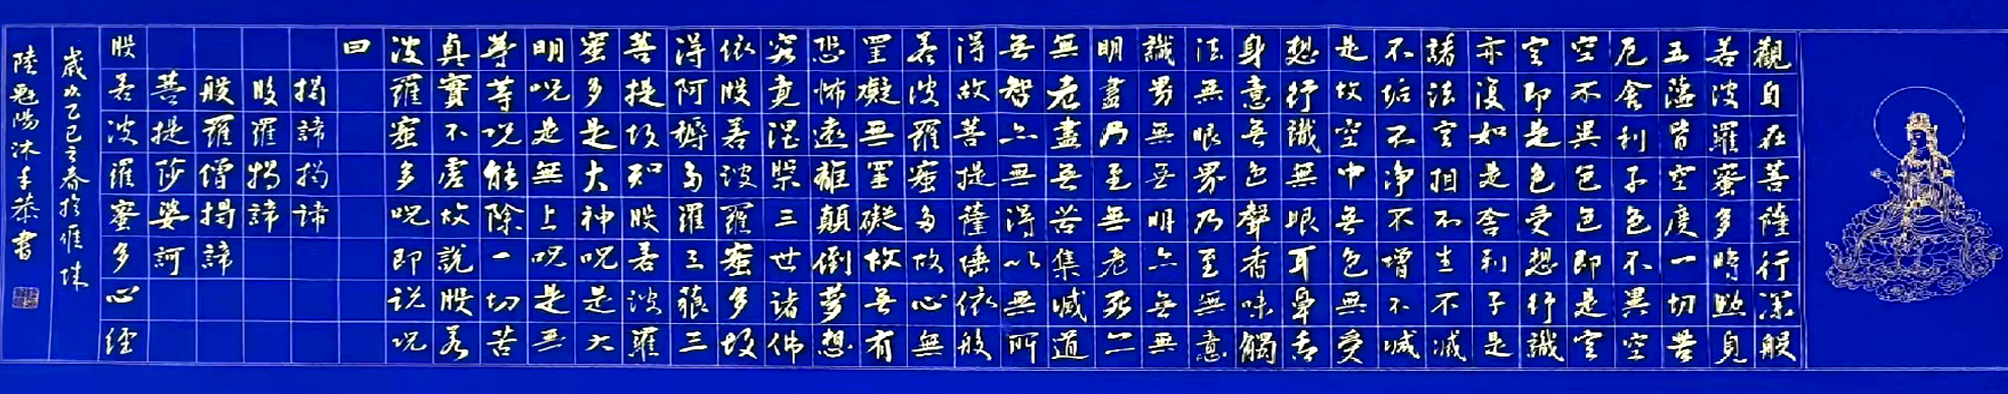 觀自在菩薩行深般
若波羅蜜多時照見
五蘊皆空度一切苦
厄舍利子色不異空
空不異色色即是空
空即是色受想行識
亦復如是舍利子是
諸法空相不生不滅
不垢不净不增不减
是故空中無色無受
想行識無眼耳鼻舌
身意無色聲香味觸
法無眼界乃至無意
識界無無明亦無無
明盡乃至無老死亦
無老盡無苦集滅道
無智亦無得以無所
得故菩提薩埵依般
若波羅蜜多故心無
罣礙無罣礙故無有
恐怖遠離顛倒夢想
究竟涅槃三世諸佛
依般若波羅蜜多故
得阿耨多羅三藐三
菩提故知般若波羅
蜜多是大神呪是大
明呪是無上呪是無
等等呪能除一切苦
真實不虛故說般若
波羅蜜多呪即说呪
曰
揭諦揭諦
般羅揭諦
般羅僧揭諦
菩提莎婆訶
般若波羅蜜多心經
歲次乙巳立春於
陸魁陽沐手恭書